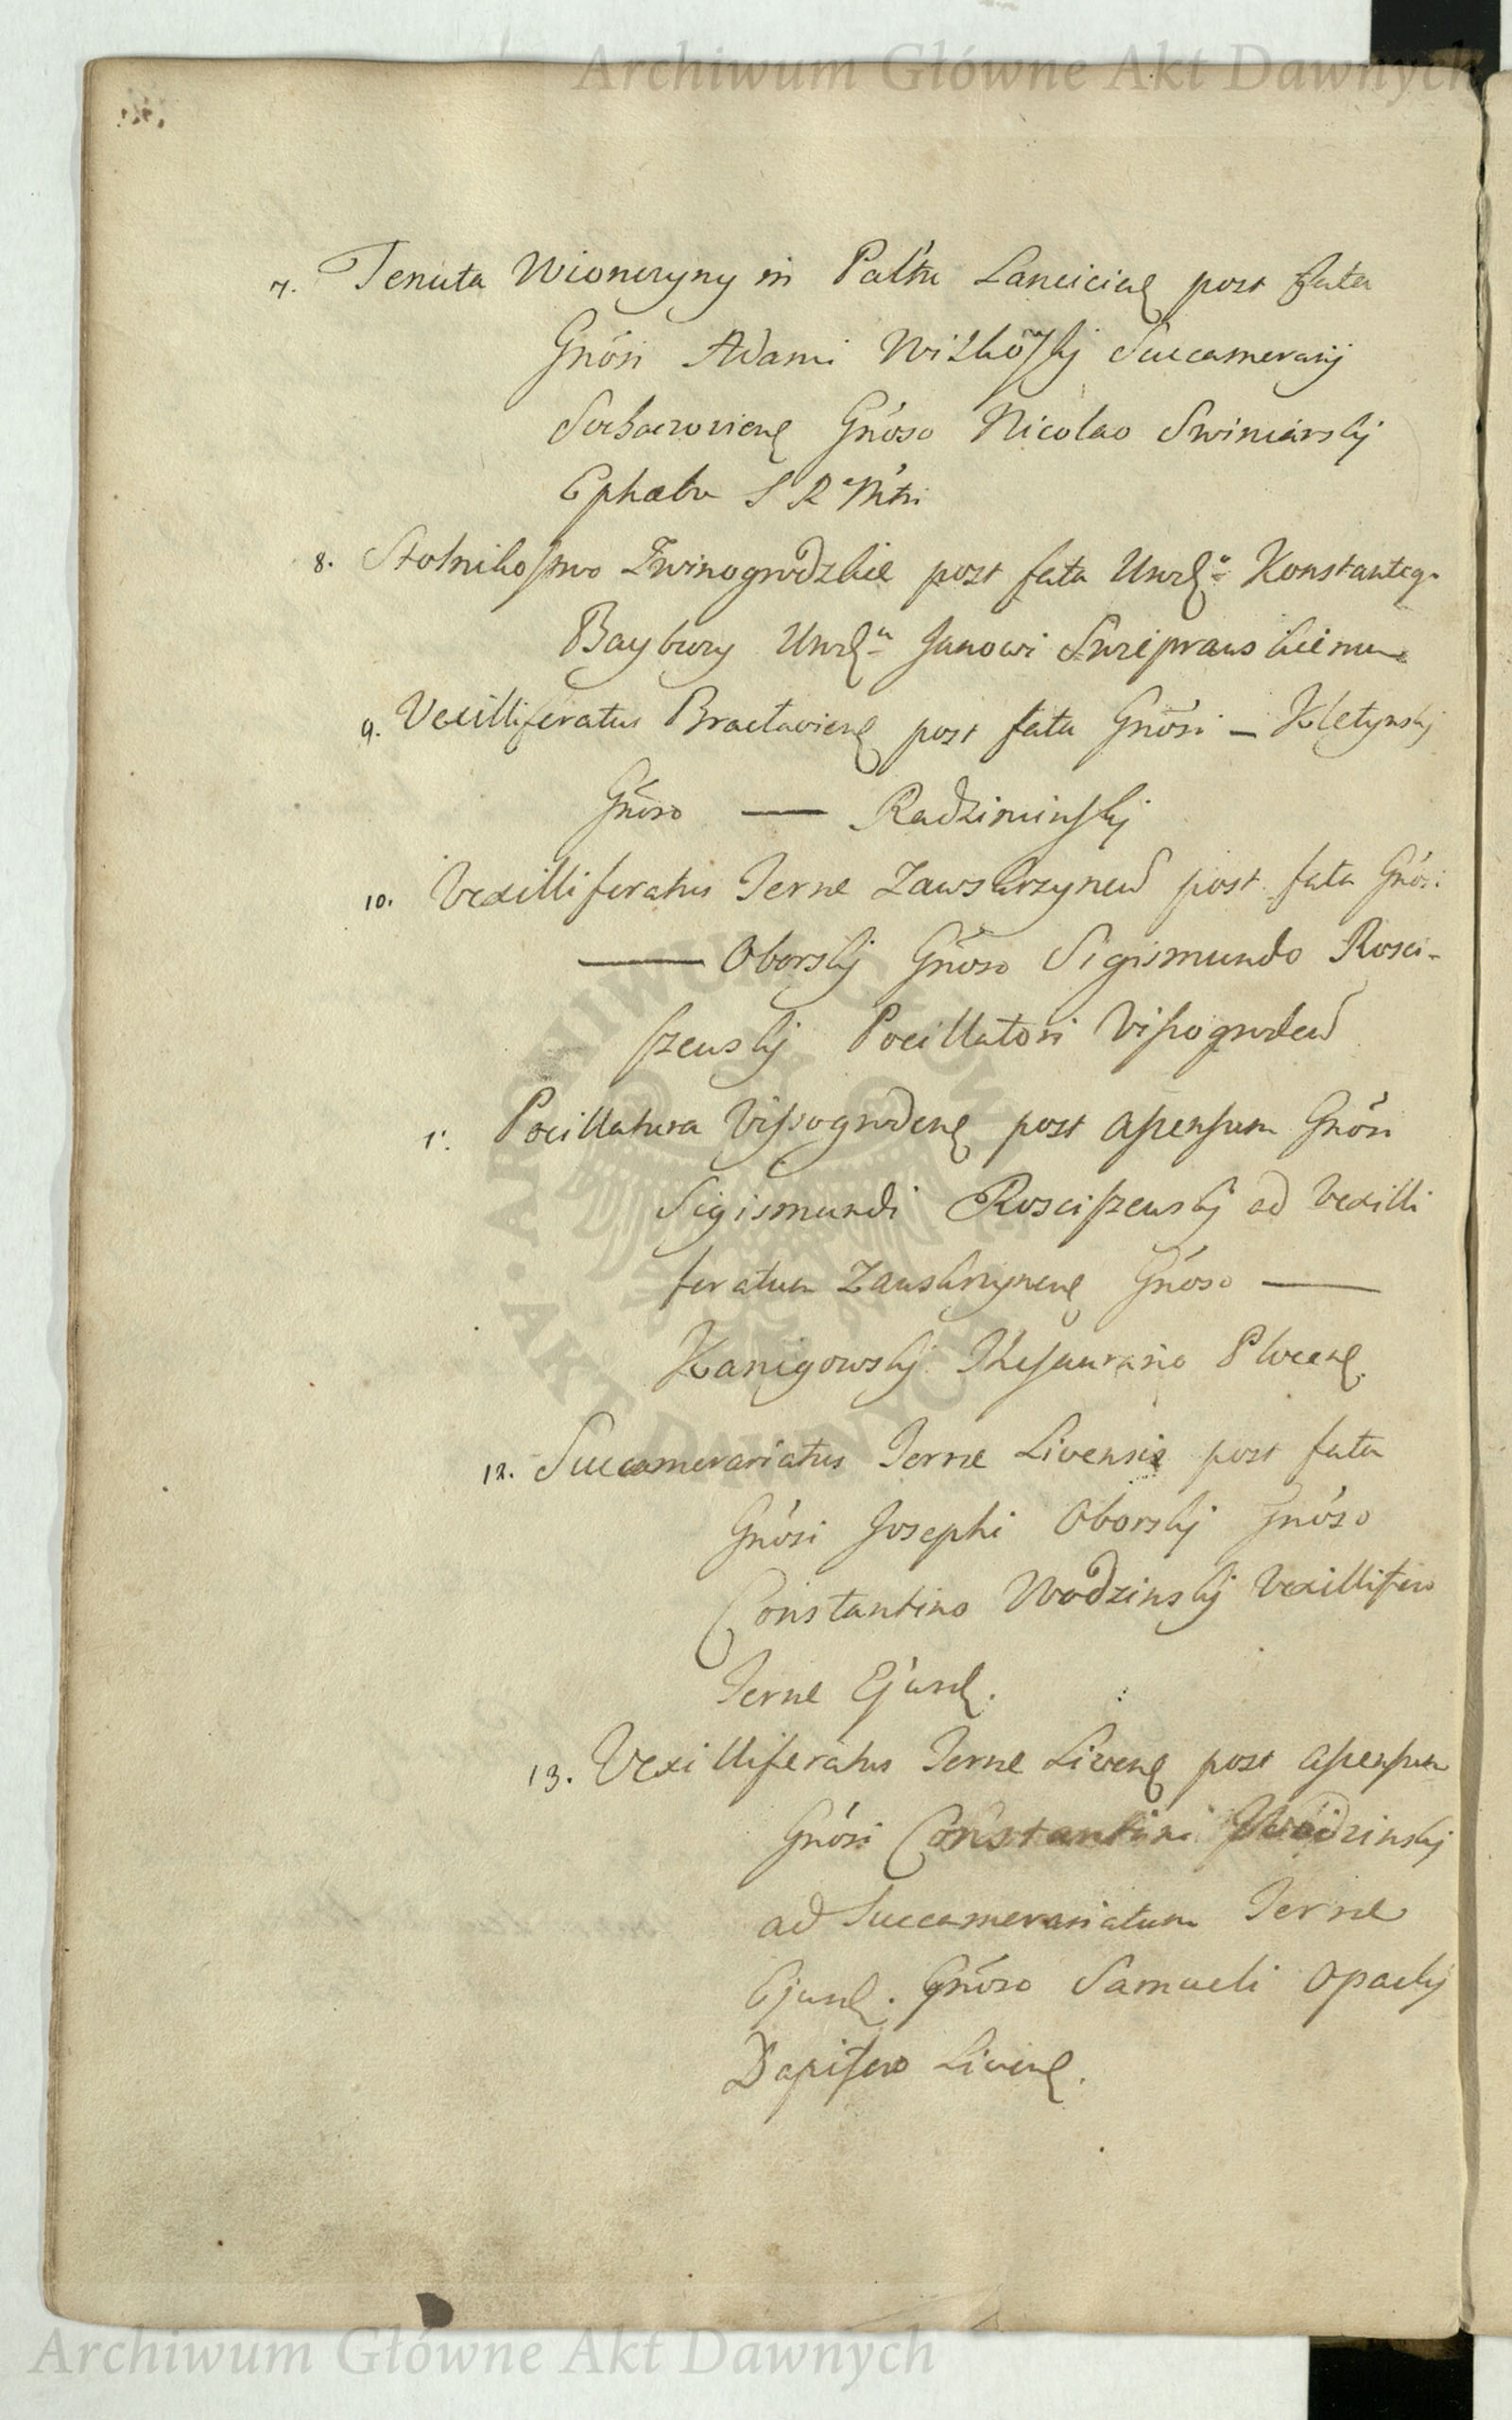 Archiwum Główne Akt Dawnych
7. Tenuta Wionczyny in Paltu Lancicien post fata
Gnosi Adami Wilkoſkj Succamerarij
Sochaczovien Gnoso Nicolao Swiniarskj
Ephæbo S R Mtti
8. Stolnikoſtwo Zwinogrodzkie post fata Urodz° Konstantego
Baybuzy Urodzu Janowi Skrziprawskiemu
9. Vexilliferatus Braclavien post fata Gnosi — Kletynskj
Gnoso — Radziminſkj
10. Vexilliferatus Terræ Zawskrzynen post fata Gnosi
— Oborskj Gnoso Sigismundo Rosci-
ſzewskj Pocillatori Viſsogroden
11. Pocillatura Viſsogroden post aſcenſum Gnosi
Sigismundi Rosciſzewskj ad Vexilli
feratum Zauskrzynen Gnoso —
Kanigowskj Theſaurario Plocen
12. Succamerariatus Terræ Livensis post fata
Gnosi Josephi Oborskj Gnoso
Constantino Wodzinskj Vexillifero
Terræ Ejusd.
13. Vexilliferatus Terræ Liven post aſcenſum
Gnosi Constantini Wodzinskj
ad Succamerariatum Terræ
Ejusd. Gnoso Samueli Opackj
Dapifero Liven.
ARCHIWUM GŁÓWNE AKT DAWNYCH
Archiwum Główne Akt Dawnych